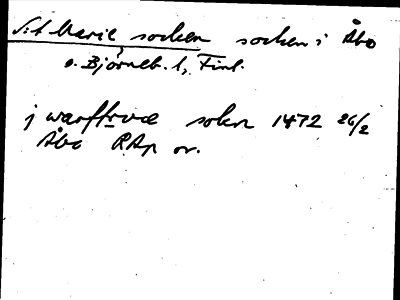 S:t Marie socken socken i Åbo
o. Björneb. l, Finl.
j warffrwe sokn 1472 26/2
Åbo RAp or.